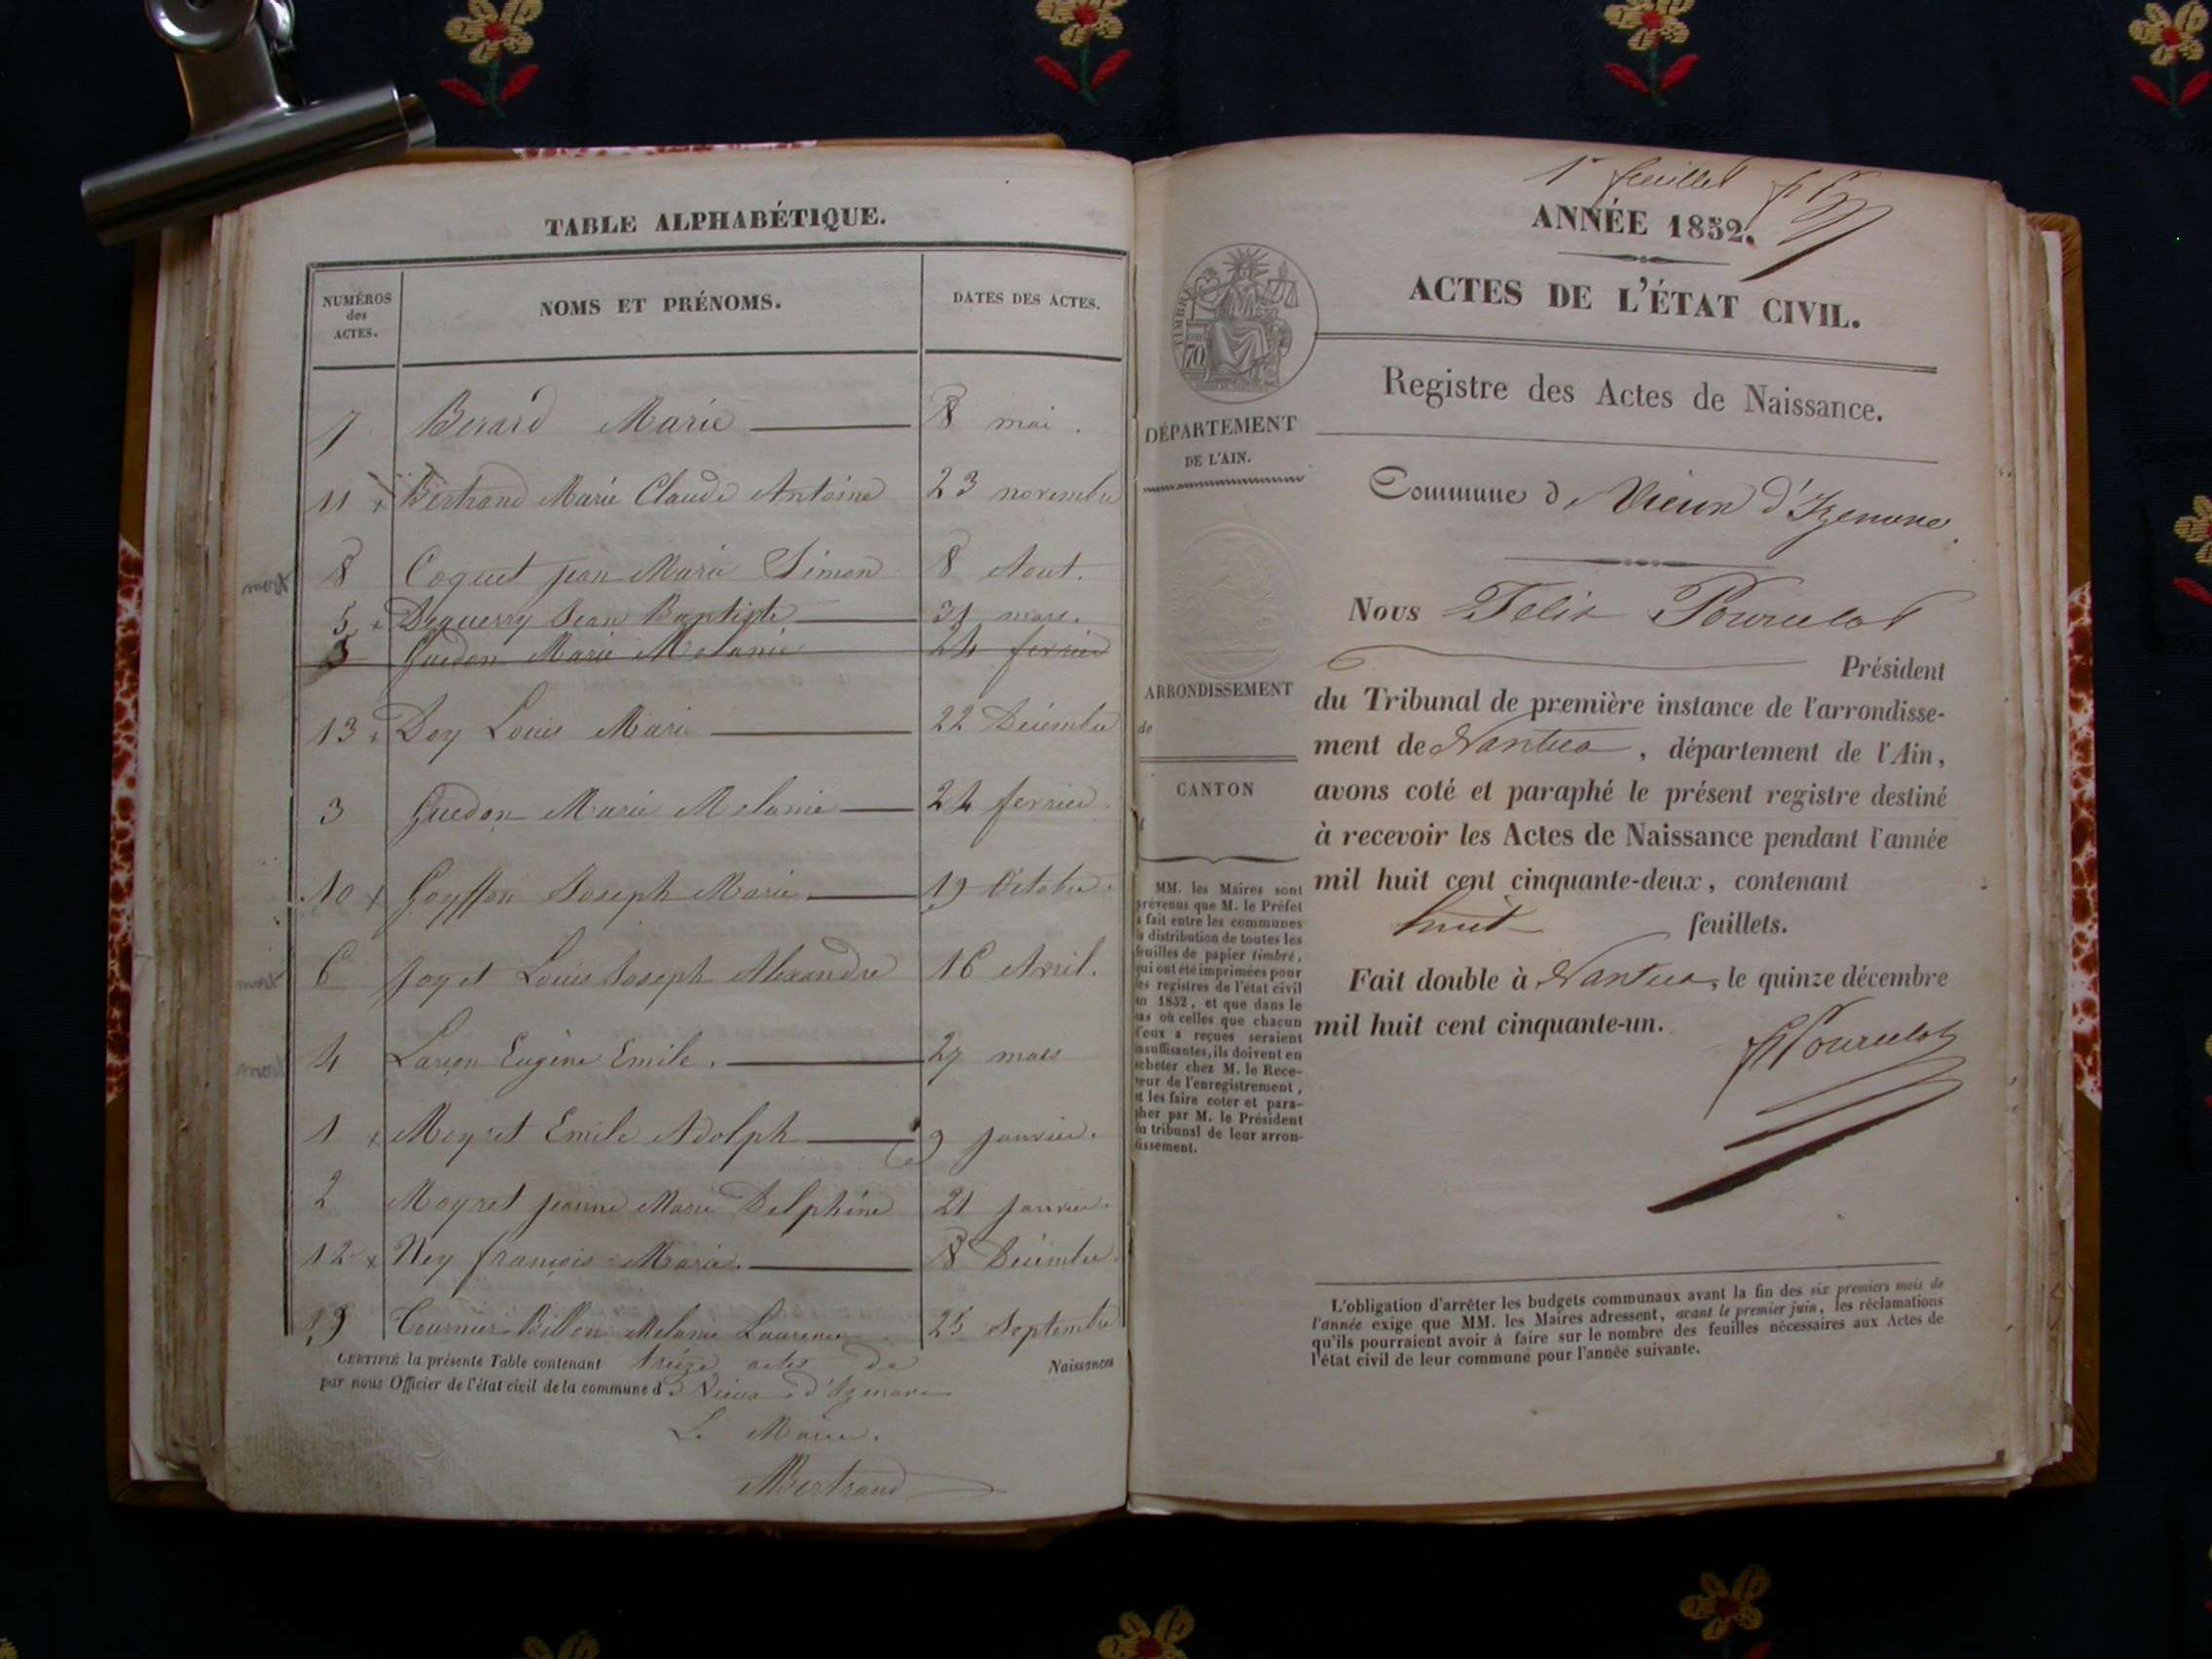 TABLE ALPHABÉTIQUE.
NUMÉROS
des
ACTES.
NOMS ET PRÉNOMS.
DATES DES ACTES.
7 Berard Marie 8 mai.
11 x Bertrand Marie Claude Antoine 23 novembre
8 Coquet jean Marie Simon 8 Aout.
5 x Deguerry Jean Baptiste 31 mars.
3 Guedon Marie Melanie 24 fevrier
13 x Doy Louis Marie 22 Décembre
3 Guedon Marie Melanie 24 fevrier.
10 x Goyffon Joseph Marie 19 Octobre.
6 Joyet Louis Joseph Alexandre 16 Avril.
4 Larçon Eugène Emile. 27 mars
1 x Moyret Emile Adolph 9 janvier.
2 Moyret jeanne Marie Delphine 21 janvier.
12 x Ney françois Marie. 8 Décembre.
9 Tournier-Billon Melanie Laurence 25 Septembre
CERTIFIÉ la présente Table contenant treize actes de Naissances
par nous Officier de l'état civil de la commune d Vieux d'Izenave
Le Maire.
Bertrand
1er feuillet
ANNÉE 1852.
ACTES DE L'ÉTAT CIVIL.
TIMBRE
70
Registre des Actes de Naissance.
DÉPARTEMENT
DE L'AIN.
Commune de Vieux d'Izenave.
Nous Felix Pourcelot
Président
du Tribunal de première instance de l'arrondisse-
ment de Nantua, département de l'Ain,
avons coté et paraphé le présent registre destiné
à recevoir les Actes de Naissance pendant l'année
mil huit cent cinquante-deux, contenant
huit feuillets.
Fait double à Nantua, le quinze décembre
mil huit cent cinquante-un.
Pourcelot
ARRONDISSEMENT
de
CANTON
MM. les Maires sont
prévenus que M. le Préfet
a fait entre les communes
la distribution de toutes les
feuilles de papier timbré,
qui ont été imprimées pour
les registres de l'état civil
en 1852, et que dans le
cas où celles que chacun
d'eux a reçues seraient
insuffisantes, ils doivent en
acheter chez M. le Rece-
veur de l'enregistrement,
et les faire coter et para-
pher par M. le Président
du tribunal de leur arron-
dissement.
L'obligation d'arrêter les budgets communaux avant la fin des six premiers mois de
l'année exige que MM. les Maires adressent, avant le premier juin, les réclamations
qu'ils pourraient avoir à faire sur le nombre des feuilles nécessaires aux Actes de
l'état civil de leur commune pour l'année suivante.